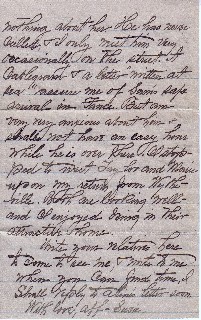 nothing about her. He has never
called, & I only meet him very
occasionally on the street. A
Cablegram & a letter written at
sea assure me of Sam's safe
arrival in France. But am
very very anxious about him
shall not have an easy time
while he is over there. I stop-
ped to meet and
upon my return from
ville. Both are looking well
and I enjoyed being in their
attractive home.
your relatives here
to come to see me & write to me
when you can find time, I
shall reply to a letter soon
With love, aff-